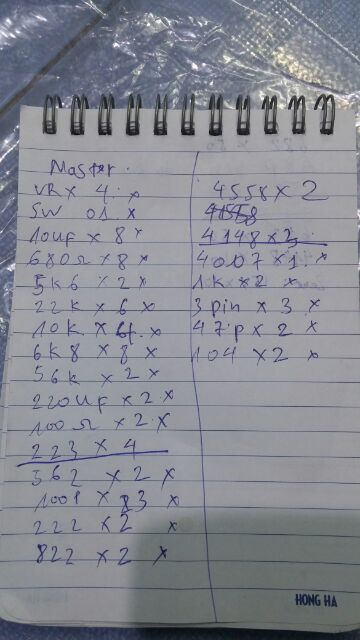 Master.
VRX 4. x
SW 01. x
10UF x 8 x
680Ω x 8 x
5K6 x 2 x
22K x 6 x
10K x x
6K8 x 8 x
56K x 2 x
220UF x 2 x
100Ω x 2 x
223 x 4
562 x 2 x
x 3 x
222 x 2 x
822 x 2 x
4558 x 2
4148 x
4007 x 1. x
1K x 2 x
3 pin x 3 x
47p x 2 x
104 x 2 x
HONG HA